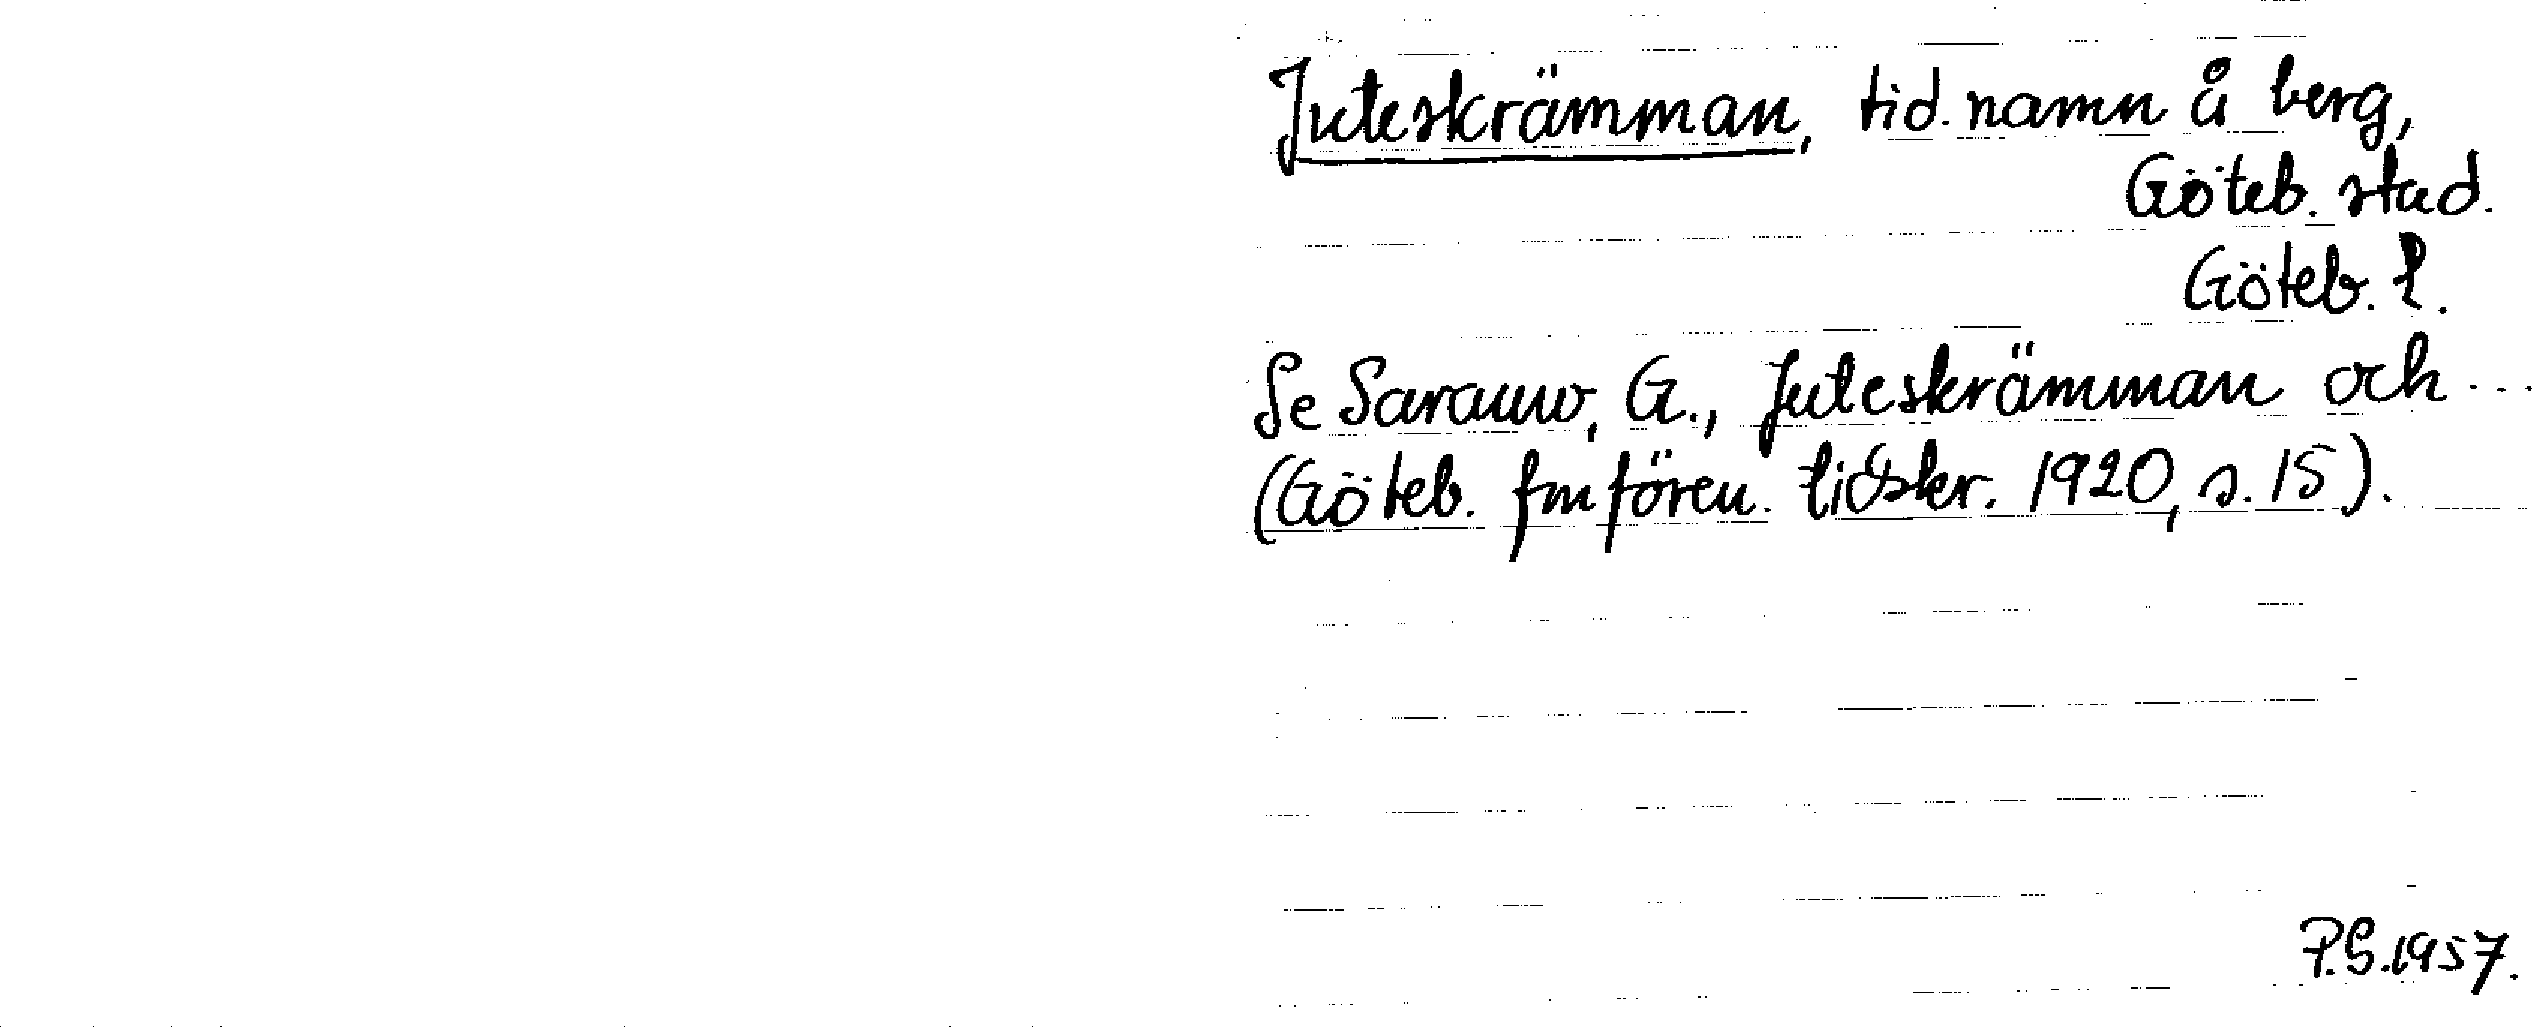 Juteskrämman, tid. namn å berg,
Göteb. stad.
Göteb. l.
Se Sarauw, G., Juteskrämman och ...
(Göteb. fmfören. tidskr. 1920, s. 15).
P.S. 1957.